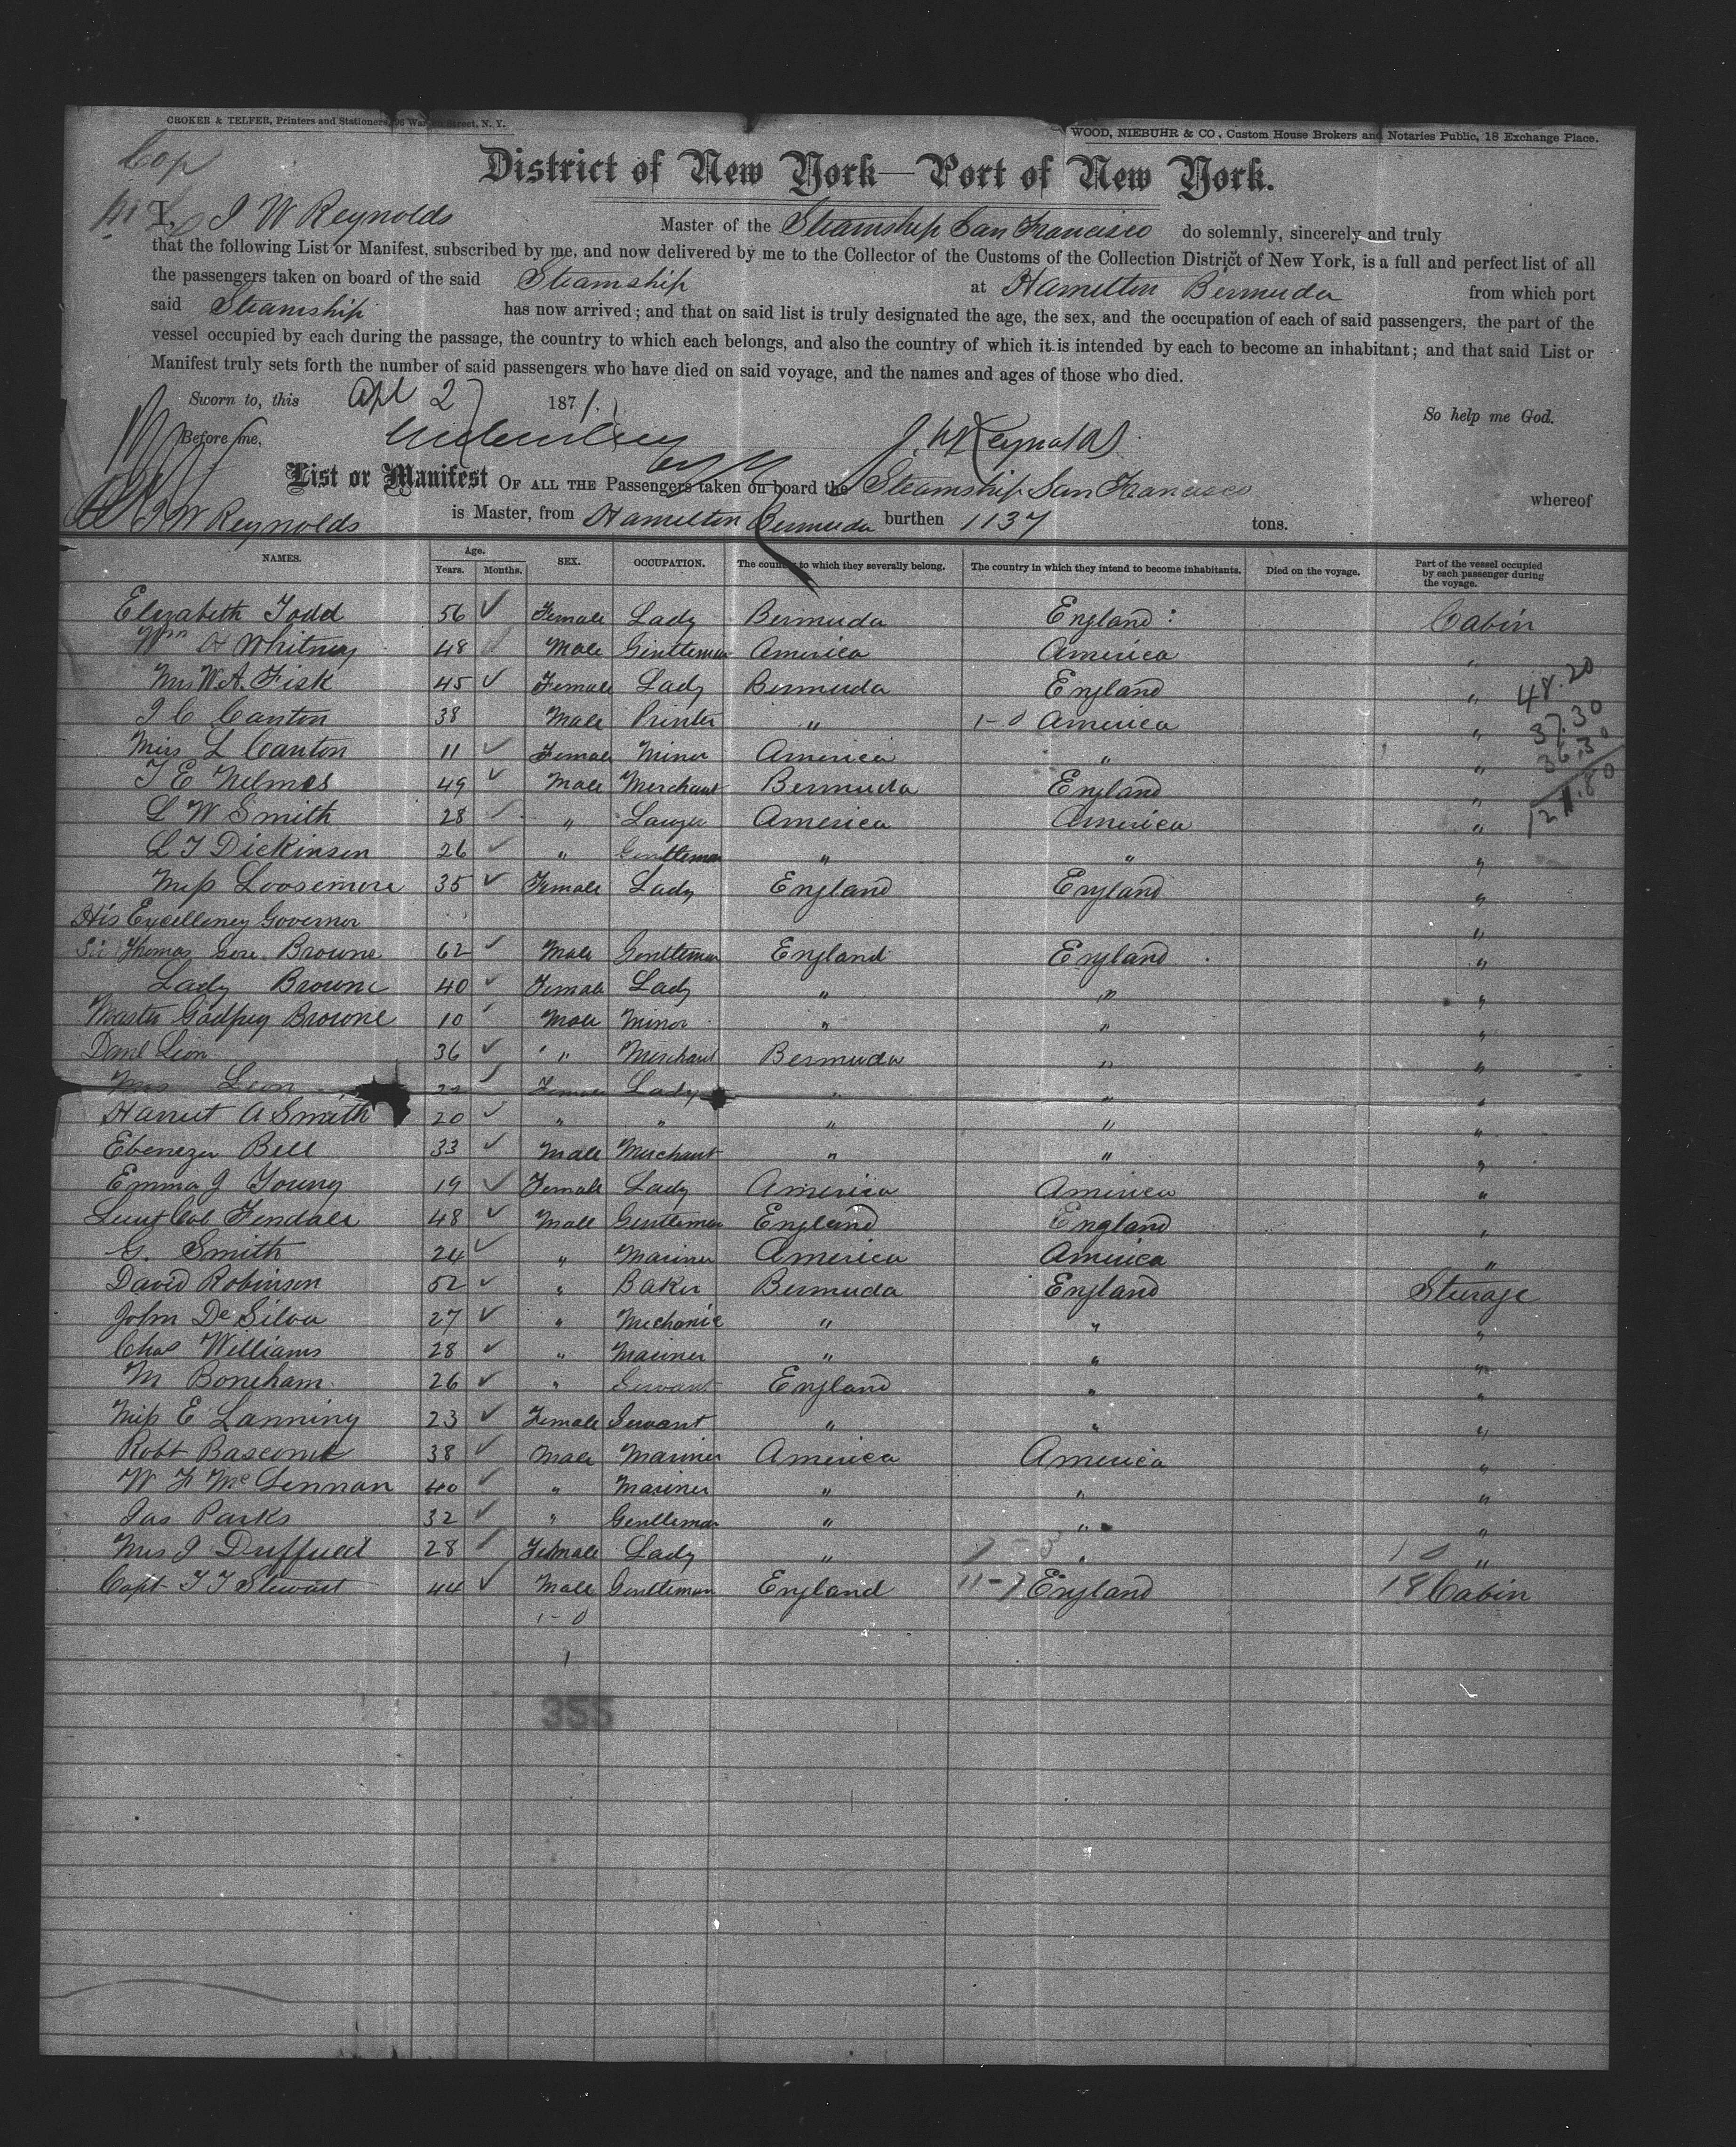 CROKER & TELFER, Printers and Stationers, 96 Warren Street, N. Y.
WOOD, NIEBUHR & CO, Custom House Brokers and Notaries Public, 18 Exchange Place.
Cop
District of New York—Port of New York.
I, J W Reynolds Master of the Steamship San Francisco do solemnly, sincerely and truly
that the following List or Manifest, subscribed by me, and now delivered by me to the Collector of the Customs of the Collection District of New York, is a full and perfect list of all
the passengers taken on board of the said Steamship at Hamilton Bermuda from which port
said Steamship has now arrived; and that on said list is truly designated the age, the sex, and the occupation of each of said passengers, the part of the
vessel occupied by each during the passage, the country to which each belongs, and also the country of which it is intended by each to become an inhabitant; and that said List or
Manifest truly sets forth the number of said passengers who have died on said voyage, and the names and ages of those who died.
Sworn to, this Apl 27 1871. So help me God.
Before me, J. W Reynolds
List or Manifest OF ALL THE Passengers taken on board the Steamship San Francisco whereof
J W Reynolds is Master, from Hamilton Bermuda burthen 1137 tons.
NAMES. Age. Years. Months. SEX. OCCUPATION. The country to which they severally belong. The country in which they intend to become inhabitants. Died on the voyage. Part of the vessel occupied by each passenger during the voyage.
Elizabeth Todd 56 Female Lady Bermuda England Cabin
Wm H Whitney 48 Male Gentleman America America "
Mrs W.A. Fisk 45 Female Lady Bermuda England " 48.20
J C Canton 38 Male Printer " 1-0 America " 37.30
Miss L Canton 11 Female Minor America " " 36.30
T E Nelmes 49 Male Merchant Bermuda England " 121.80
L W Smith 28 " Lawyer America America "
L T Dickinson 26 " Gentleman " " "
Miss Loosemore 35 Female Lady England England "
His Excellency Governor "
Sir Thomas Gore Browne 62 Male Gentleman England England "
Lady Browne 40 Female Lady " " "
Master Godfrey Browne 10 Male Minor " " "
Danl Leon 36 " Merchant Bermuda " "
Mrs Leon Female Lady " " "
Harriet A Smith 20 " " " " "
Ebenezer Bell 33 Male Merchant " " "
Emma J Young 19 Female Lady America America "
Lieut Col Fendall 48 Male Gentleman England England "
G. Smith 24 " Mariner America America "
David Robinson 52 " Baker Bermuda England Sturage
John De Silva 27 " Mechanic " " "
Chas Williams 28 " Mariner " " "
M Boneham 26 " Servant England " "
Miss E Lanning 23 Female Servant " " "
Robt Bascome 38 Male Mariner America America "
W F McLennan 40 " Mariner " " "
Jas Parks 32 " Gentleman " " "
Mrs J 28 Female Lady " " "
Capt T J Stewart 44 Male Gentleman England 11-7 England 18 Cabin
1-0
1
355